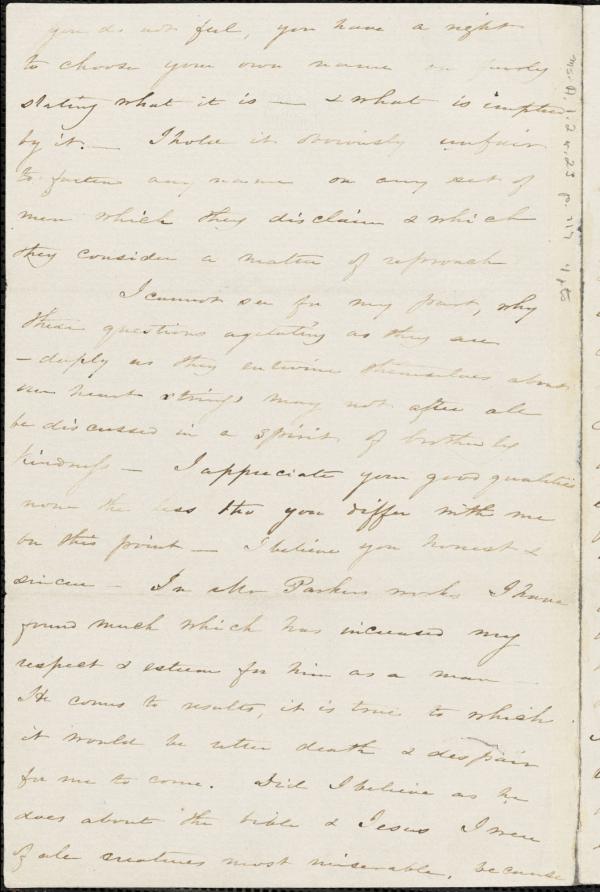 you do not feel, you have a right
to choose your own name on fairly
stating what it is — & what is implied
by it. — I hold it obviously unfair
to fasten any name on any set of
men which they disclaim & which
they consider a matter of reproach
I cannot see for my part, why
these questions agitating as they are
— deeply as they entwine themselves about
our heart strings may not after all
be discussed in a spirit of brotherly
kindness — I appreciate your good qualities
none the less tho you differ with me
on this point — I believe you honest &
sincere — In Mr Parkers works I have
found much which has increased my
respect & esteem for him as a man
He comes to results, it is true to which
it would be utter death & despair
for me to come. Did I believe as he
does about the bible & Jesus I were
of all creatures most miserable, because
Ms. A. 1. 2 v. 23 p.